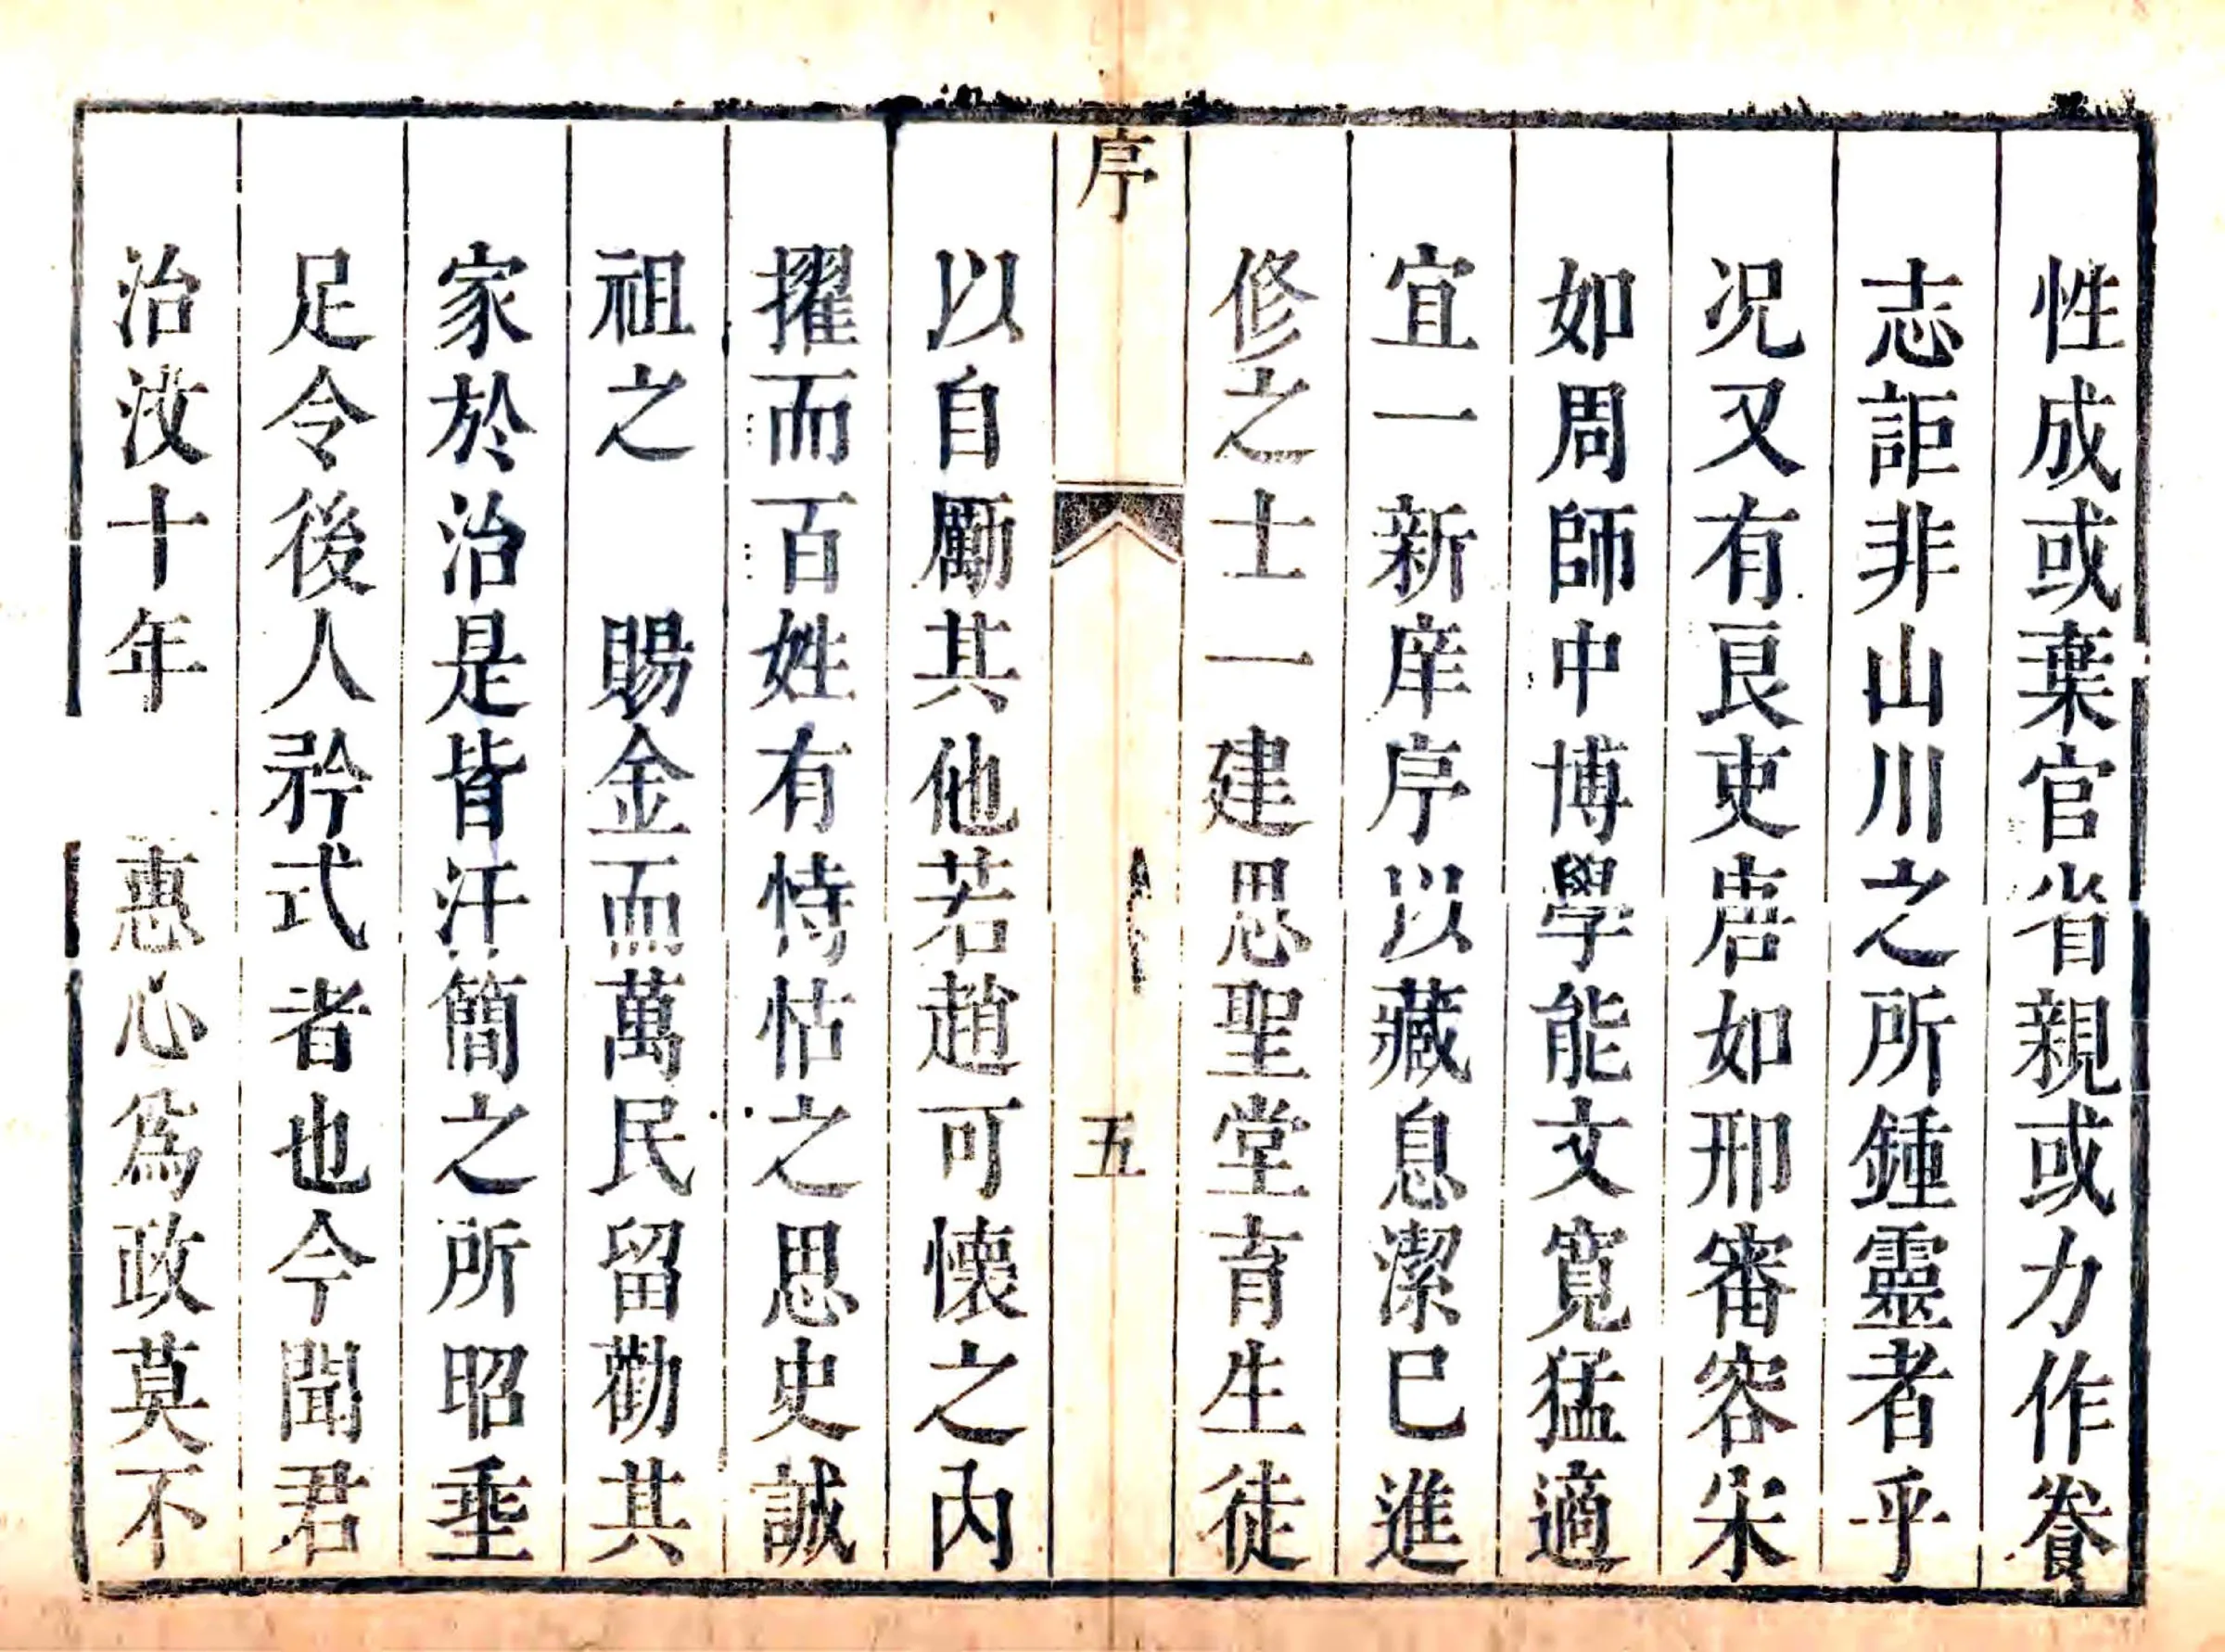 性成或棄官省親或力作養
志詎非山川之所鍾靈者乎
况又有良吏唐如邢審容宋
如周師中博學能文寬猛適
宜一新庠序以藏息潔巳進
修之士一建思聖堂育生徒
序
五
以自勵其他若趙可懷之內
擢而百姓有恃怙之思史誠
祖之 賜金而萬民留勸其
家於治是皆汗簡之所昭垂
足令後人矜式者也今聞君
治汝十年 惠心爲政莫不